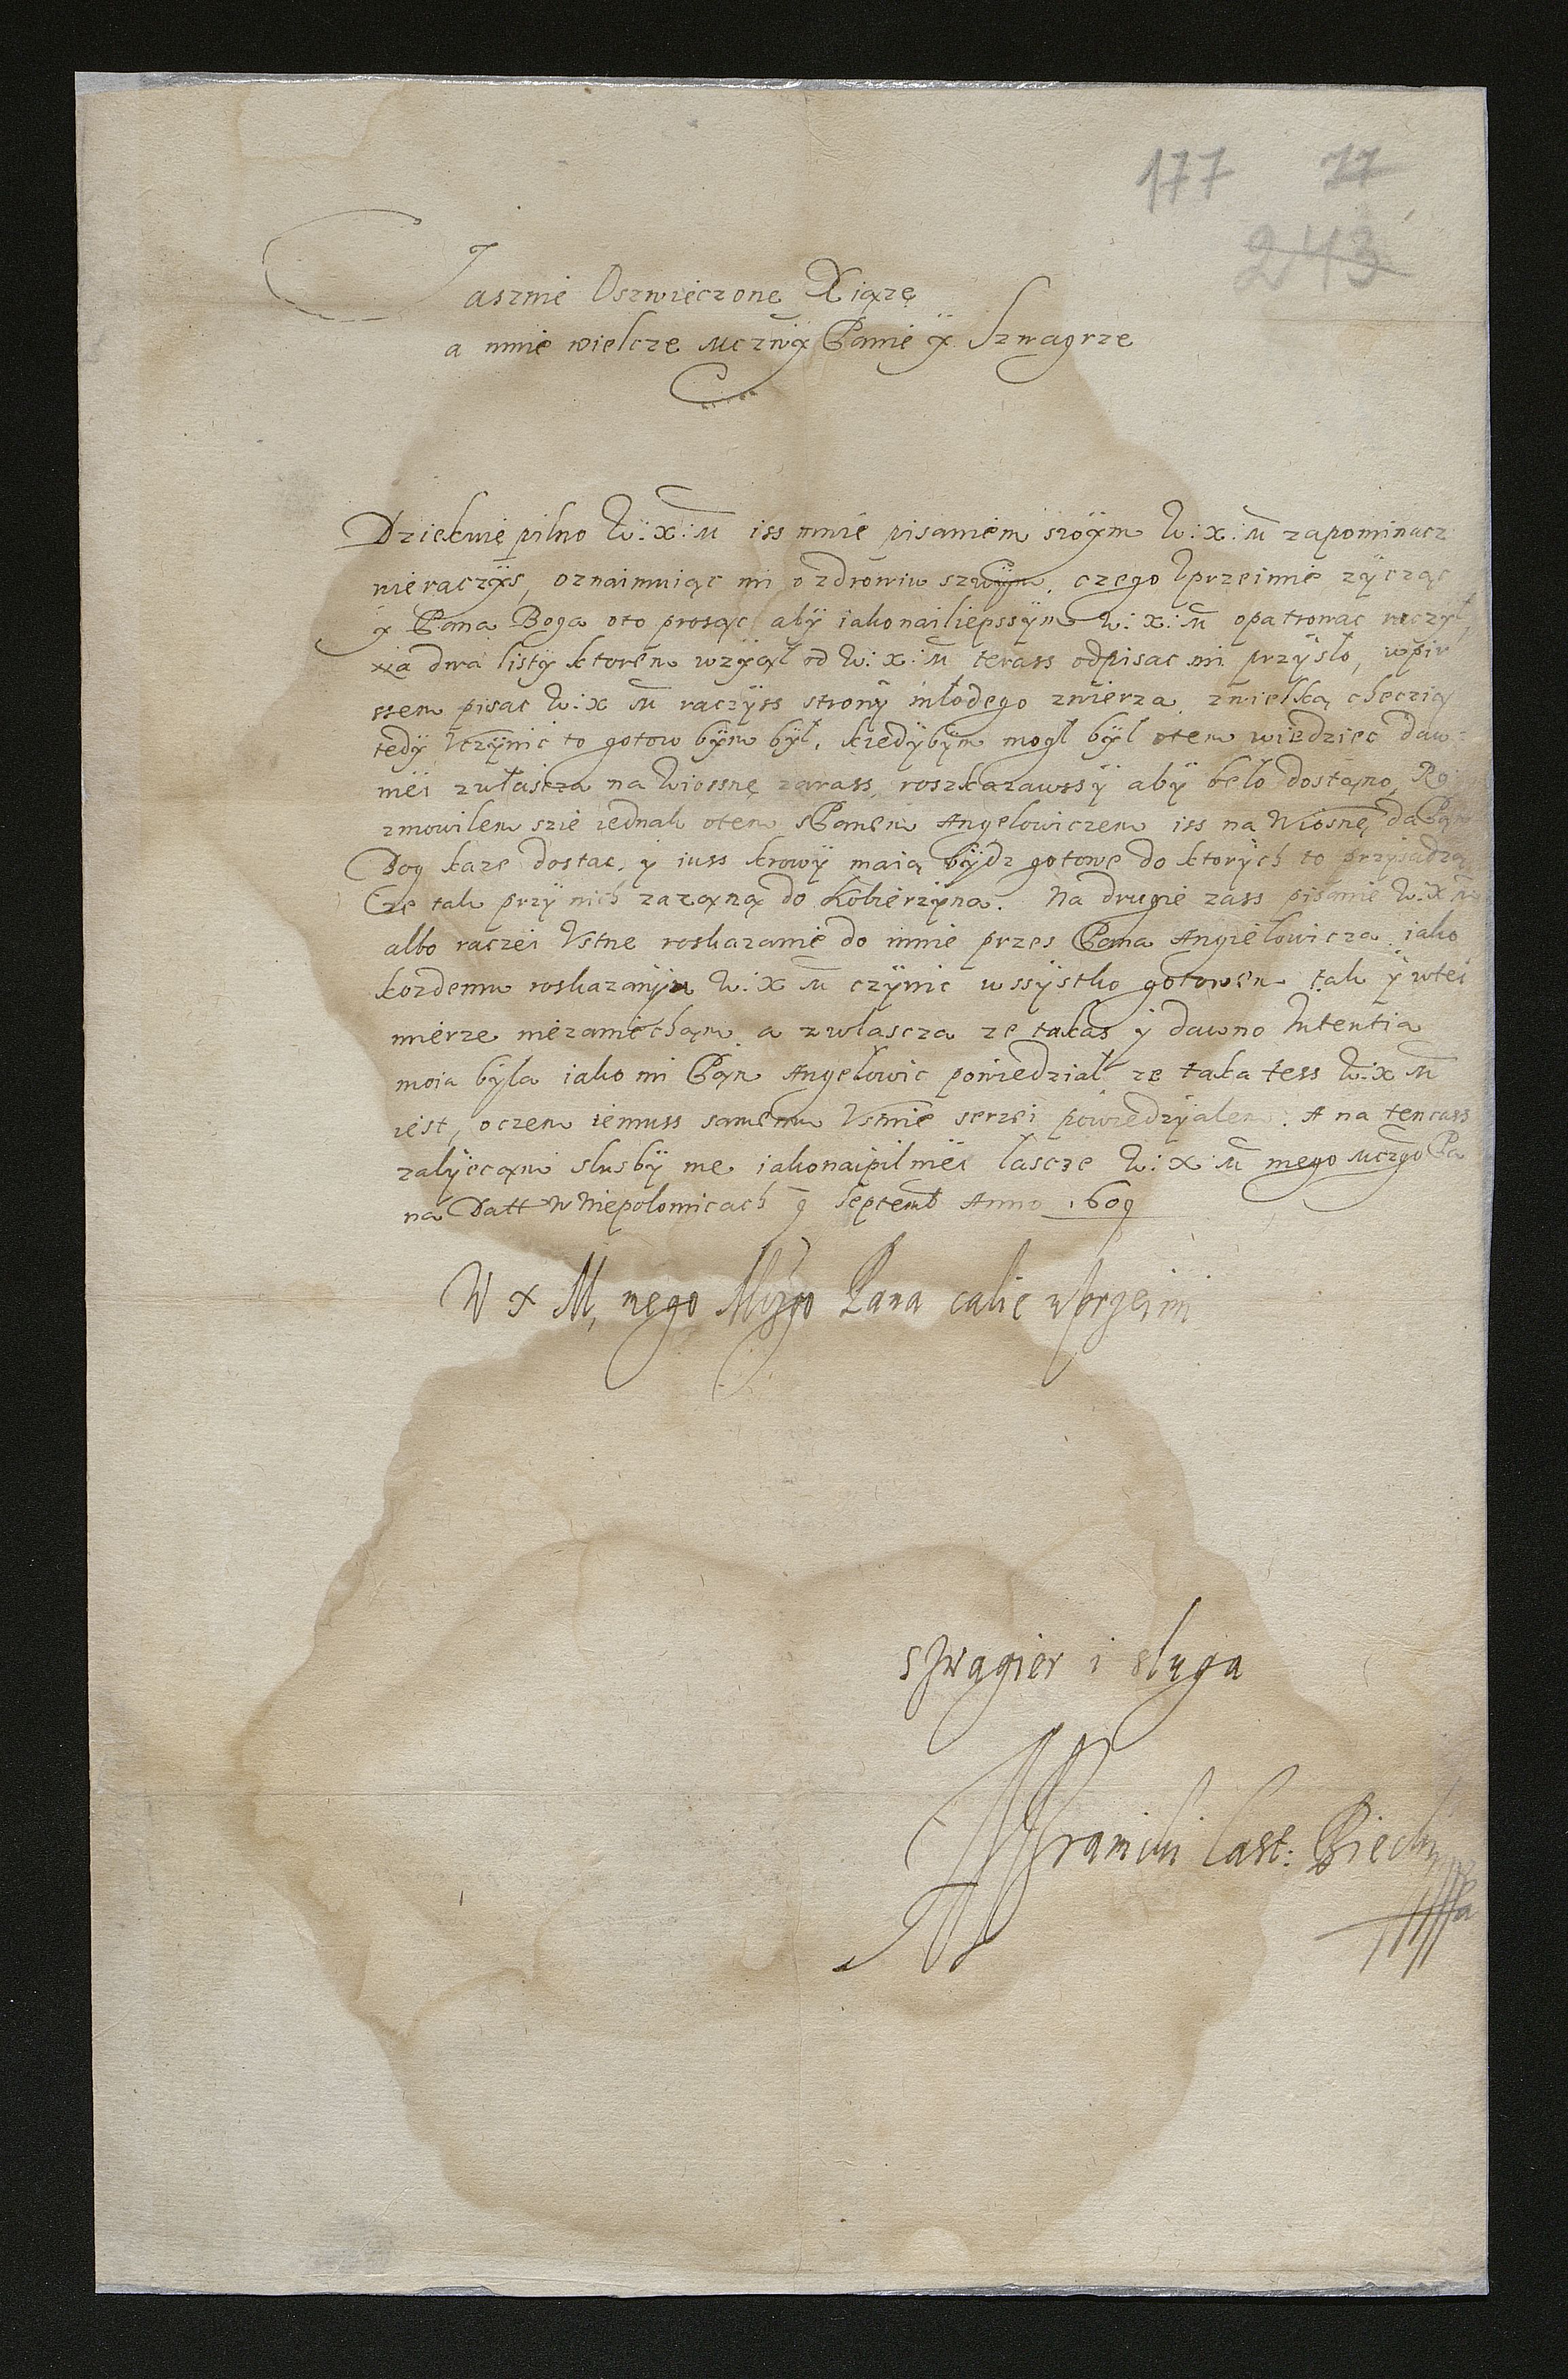 177 77
243
Jasznie Oszwieczone Xiąze
a mnie wielcze Mczwÿ Panie ÿ Szwagrze
Dziekuie pilno W: X: M iss mnie pisaniem swoÿm W: X: M zapominacz
nieraczÿs, oznaimuiąc mi o zdrowiu szwÿm, czego Uprzeimie zÿcząc
ÿ Pana Boga oto prosząc abÿ iakonailiepssÿm W: X: M opatrowac raczÿł,
Na dwa listÿ ktorem wzÿął od W: X: M terass odpisac mi przÿsło, wpir
ssem pisac W: X M raczÿss stronÿ młodego zwierza, zwielką checzią
tedÿ Uczÿnic to gotow bÿm bÿł, kiedÿbÿm mogł bÿł otem wiedziec daw:
niei zwłascza na Wiossnę zarass, roszkazawssÿ abÿ beło dostąno, Ro
zmowilem szie iednak otem sPanem Angelowiczem iss na Wiosnę da Pan
Bog kaze dostac, ÿ iuss krowÿ maią bÿdz gotowe do ktorÿch to przÿsadzą
Ze tak przÿ nich zazoną do Kobierzÿna. Na drugie zass pisanie W: X M
albo raczei Ustne roskazanie do mnie przes Pana Angielowicza, iako
kozdemu roskazaniu W: X M czÿnic wssÿstko gotowem tak ÿ wtei
mierze niezaniecham, a zwlascza ze takas ÿ dawno Intentia
moia bÿla iako mi Pan Angelowic powiedział ze taka tess W: X M
iest, oczem iemuss samemu Ustnie serzei powiedzÿalem. A na tencass
zalÿecam slusbÿ me iakonaipilniei lascze W: X: M mego Mczgo Pa
na Datt w Niepolomicach 9 Septemb Anno 1609
W X M, mego Mczgo Pana calie uprzeimi
szwagier i sluga
Branicki Cast: Biecki